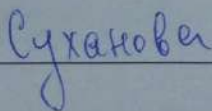 Суханова